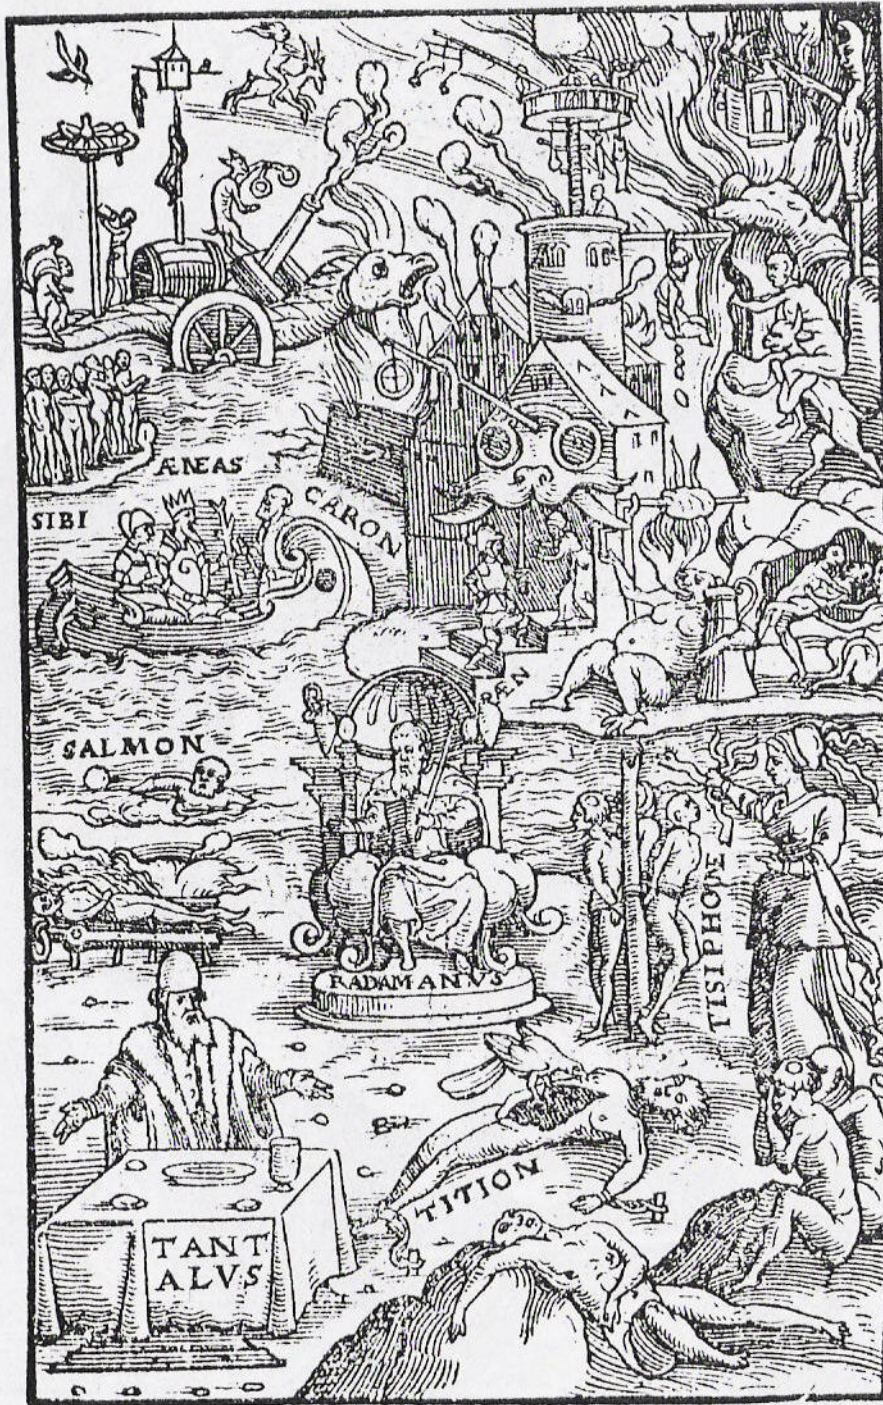 ÆNEAS
SIBI
CARON
ÆN
SALMON
RADAMANVS
TISIPHODE
TITION
TANT
ALVS